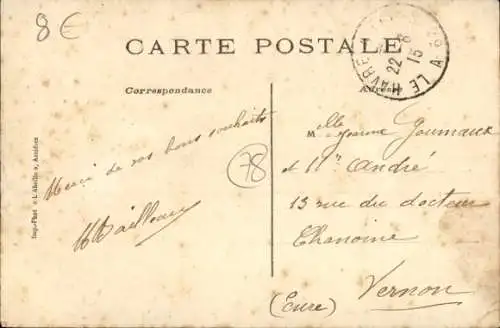 8€
CARTE POSTALE
Correspondance
Adresse
LE HAVRE
22 - 8
15
Imp.-Phot « L'Abeille », Asnières
Merci de vos bons souhaits
78
Mlle Jeanne Goumaux
et Mr André
13 rue du docteur
Chanoine
Vernon
(Eure)